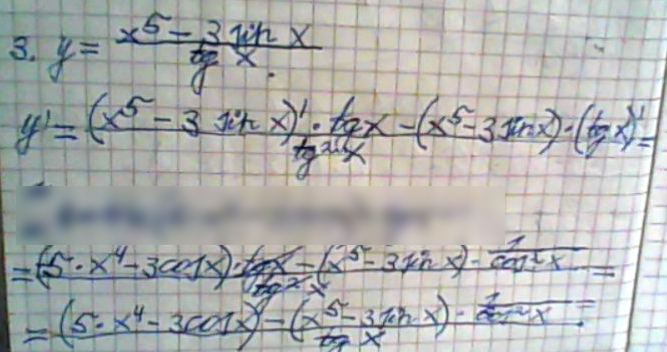 3. y = (x^5 - 3 sin x) / (tg x).
y' = ((x^5 - 3 sin x)' · tg x - (x^5 - 3 sin x) · (tg x)') / (tg² x) =
= ((5 · x^4 - 3 cos x) · tg x - (x^5 - 3 sin x) · 1/(cos² x)) / (tg² x) =
= ((5 · x^4 - 3 cos x) - (x^5 - 3 sin x) · 1/(cos² x)) / (tg x) .